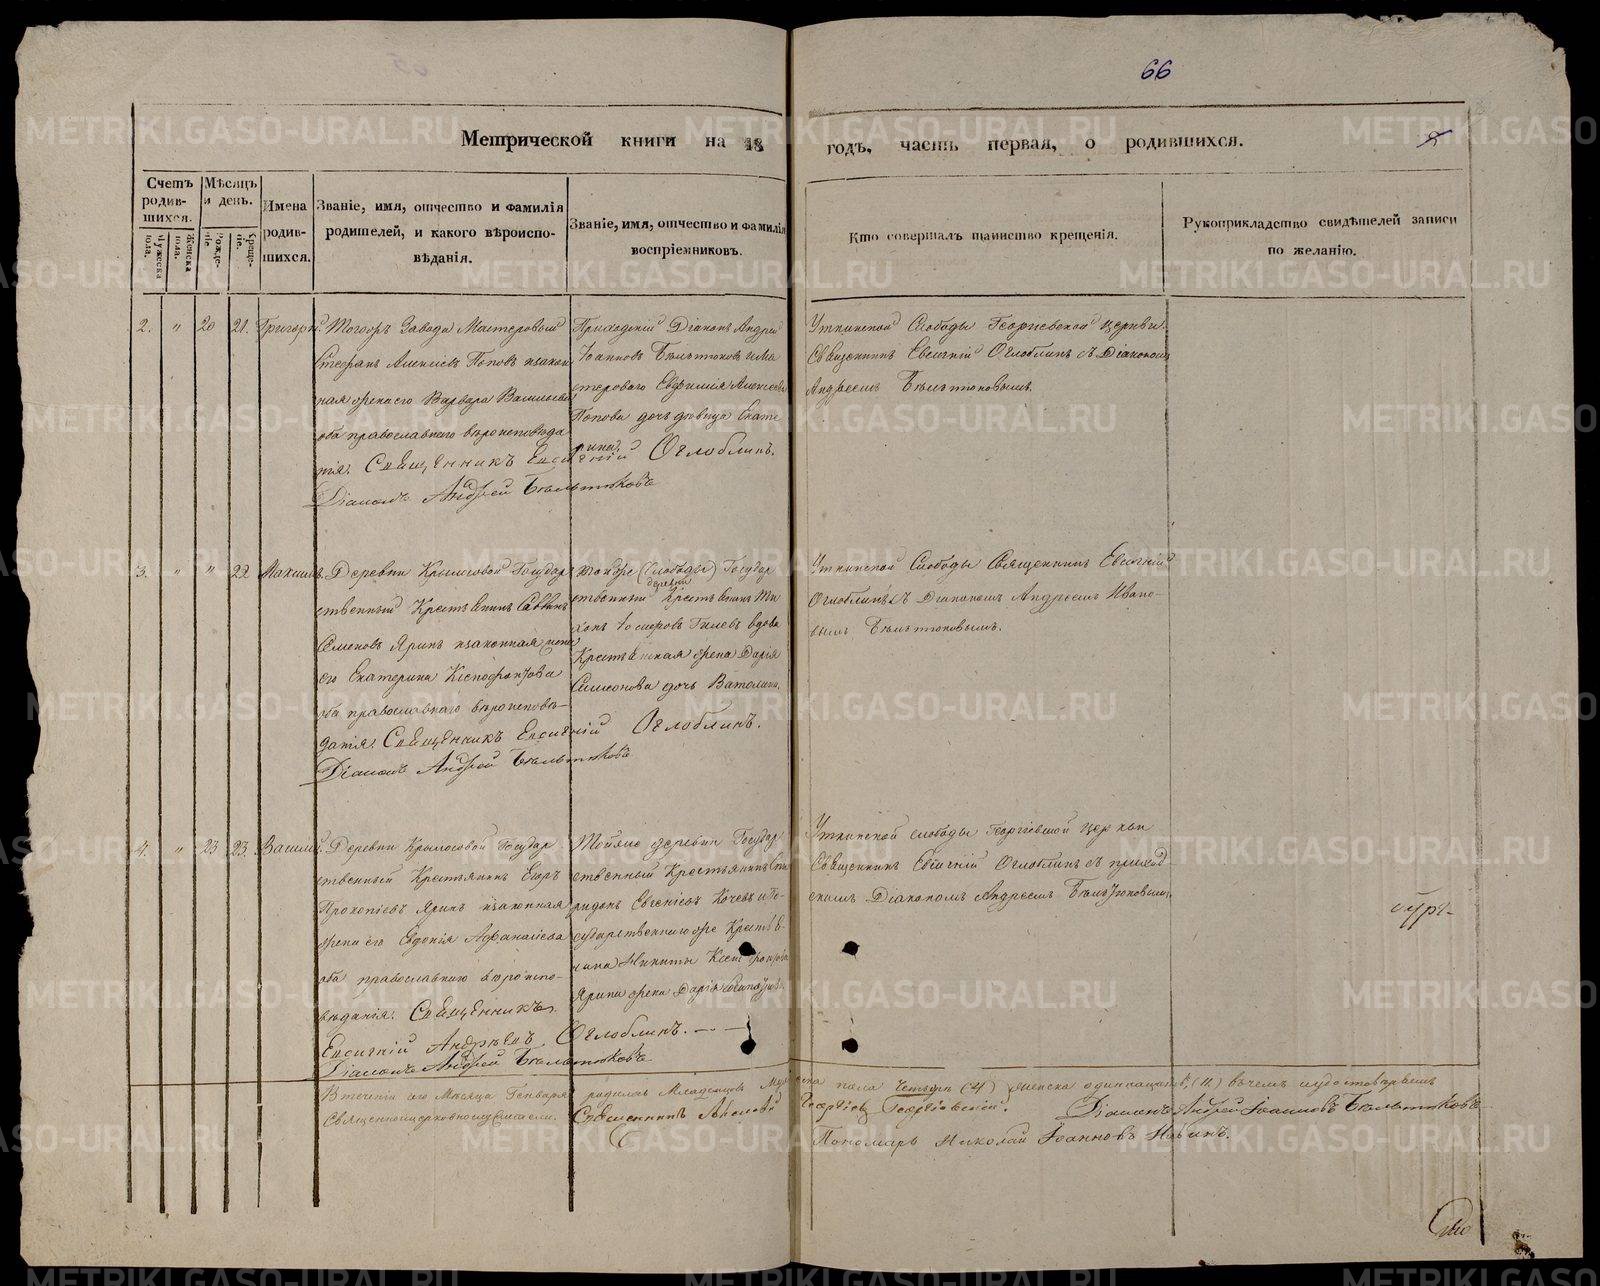 66
Метрической книги на 18
годъ, часть первая, о родившихся.
Счетъ родив-
шихся.
Мѣсяцъ
и день.
Имена
родив-
шихся.
Званіе, имя, отчество и фамилія
родителей, и какого вѣроиспо-
вѣданія.
Званіе, имя, отчество и фамилія
воспріемниковъ.
Кто совершалъ таинство крещенія.
Рукоприкладство свидѣтелей записи
по желанію.
Мужеска
пола.
Женска
пола.
Рожде-
ніе.
Креще-
ніе.
2. " 20 21. Григорій.
Завода Мастеровой
Стефанъ Алексіевъ Поповъ и закон
ная жена его Варвара Васильева
оба православнаго вѣроисповѣда
нія. Священникъ Евсигній Оглоблинъ.
Діаконъ Андрей Бѣльтюковъ
Приходскій Діаконъ Андрей
Іоанновъ Бѣльтюковъ и Ма
стероваго Евфимія Алексѣева
Попова дочь дѣвица Екате
рина
Уткинской Слободы Георгіевской церкви
Священникъ Евсигній Оглоблинъ съ Діакономъ
Андреемъ Бѣльтюковымъ.
3. " " 22 Максимъ.
Деревни Крылосовой Государ
ственный Крестьянинъ Савва
Семеновъ Яринъ и законная жена
его Екатерина Ксенофонтова
оба православнаго вѣроисповѣ-
данія. Священникъ Евсигній Оглоблинъ.
Діаконъ Андрей Бѣльтюковъ
Тойже (Слободы) Государ
деревни
ственный Крестьянинъ Ти
хонъ Гилевъ вдова
Крестьянская жена Дарія
Симеонова дочь
Уткинской Слободы Священникъ Евсигній
Оглоблинъ съ Діакономъ Андреемъ Ивано-
вымъ Бѣльтюковымъ.
4. " 23 23. Василій.
Деревни Крылосовой Государ
ственный Крестьянинъ Егоръ
Прокопіевъ Яринъ и законная
жена его Евдокія Афанасіева
оба православнаго вѣроиспо-
вѣданія. Священникъ
Евсигній Андреевъ Оглоблинъ.
Діаконъ Андрей Бѣльтюковъ
Тойже деревни Государ
ственный Крестьянинъ Спи
ридонъ Евгеніевъ Кочевъ и Го-
сударственнаго же Крестья
нина Никиты Ксенофонтова
Ярина жена Дарія
Уткинской слободы Георгіевской церкви
Священникъ Евсигній Оглоблинъ съ приход
скимъ Діакономъ Андреемъ Бѣльтюковымъ
Втеченіи сего Мѣсяца Генваря родилось Младенцовъ Мужеска пола Четыре (4) женска одинадцать (11) въ чемъ и удостовѣряемъ
Священноцерковнослужители. Священникъ Георгіевскій. Діаконъ Андрей Іоанновъ Бѣльтюковъ
Пономарь Николай Іоанновъ
METRIKI.GASO-URAL.RU